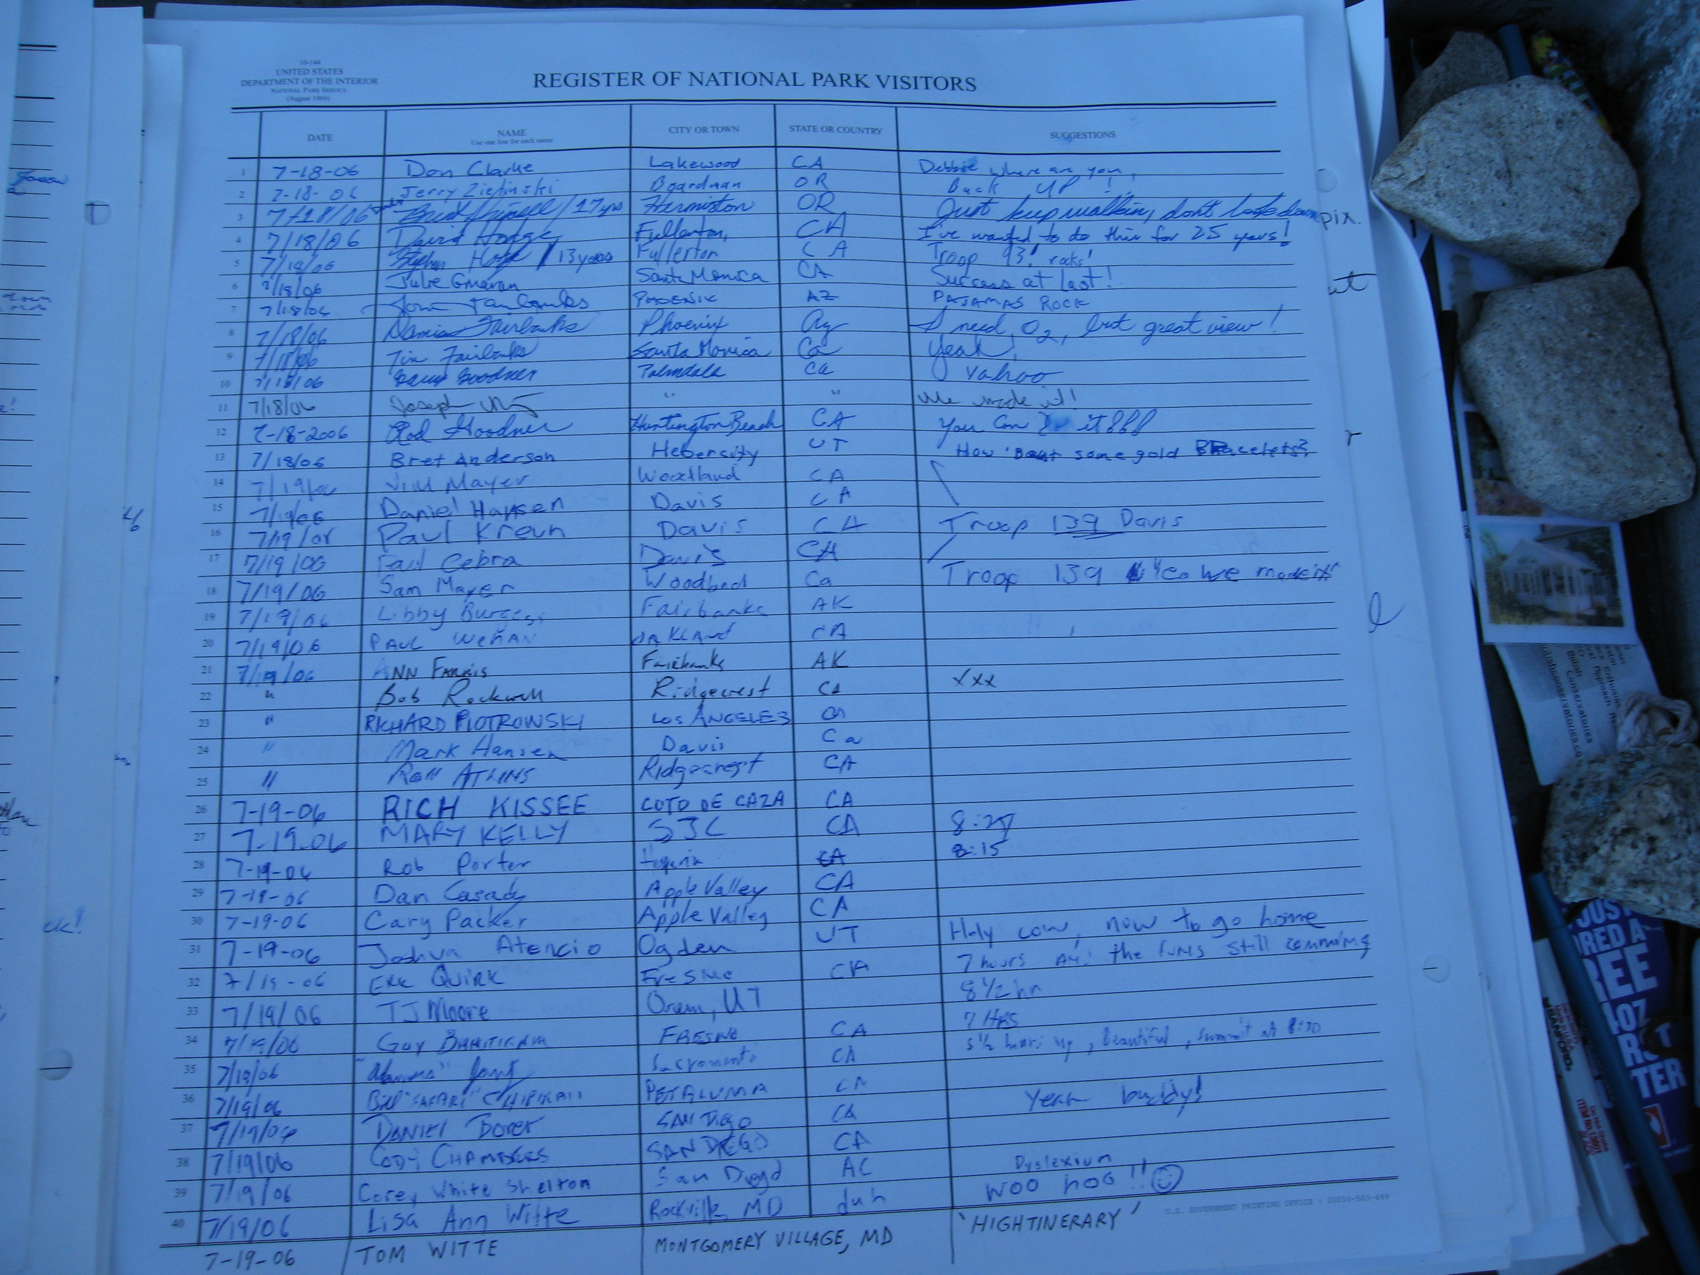 10-144
UNITED STATES
DEPARTMENT OF THE INTERIOR
NATIONAL PARK SERVICE
REGISTER OF NATIONAL PARK VISITORS
DATE NAME CITY OR TOWN STATE OR COUNTRY SUGGESTIONS
Use one line for each name
1 7-18-06 Don Clarke Lakewood CA Debbie where are you,
2 7-18-06 Jerry Zielinski Boardman OR Back UP!
3 7/18/06 /17yrs Hermiston OR Just keep walking, dont look down
4 7/18/06 David Hodge Fullerton, CA I've wanted to do this for 25 years!
5 7/18/06 Stephen Hodge / 13 years Fullerton CA Troop 93 rocks!
6 7/18/06 Julie Santa Monica CA Success at last!
7 7/18/06 PHOENIX AZ PAJAMAS ROCK
8 7/18/06 Fairbanks Phoenix Az I need O2, but great view!
9 7/18/06 Tim Fairbanks Santa Monica Ca Yeah!
10 7/18/06 Goodner Palmdale Ca yahoo
11 7/18/06 Joseph " " We made it!
12 7-18-2006 Rod Goodner Huntington Beach CA You Can it!!!
13 7/18/06 Bret Anderson Hebercity UT How 'bout some gold Bracelets?
14 7/19/06 Jim Mayer Woodland CA
15 7/19/06 Daniel Hansen Davis CA
16 7/19/06 Paul Kreun Davis CA Troop 139 Davis
17 7/19/06 Cebra Davis CA
18 7/19/06 Sam Mayer Woodland Ca Troop 139 we made it
19 7/19/06 Libby Burgess Fairbanks AK
20 7/19/06 PAUL WEHAN OAKLAND CA
21 7/19/06 ANN FARRIS Fairbanks AK
22 " Bob Rockwell Ridgecrest CA xxx
23 " RICHARD PIOTROWSKI LOS ANGELES CA
24 " Mark Hansen Davis Ca
25 " ATKINS Ridgecrest CA
26 7-19-06 RICH KISSEE COTO DE CAZA CA
27 7-19-06 MARY KELLY SJC CA 8:25
28 7-19-06 Rob Porter CA 8:15
29 7-19-06 Dan Casady Apple Valley CA
30 7-19-06 Cary Packer Apple Valley CA
31 7-19-06 Joshua Atencio Ogden UT Holy cow, now to go home
32 7/19-06 Eric QUIRK Fresno CA 7 hours the still comming
33 7/19/06 TJ Moore Orem, UT 8 1/2 hr
34 7/19/06 Guy FRESNO CA 7 HRS
35 7/19/06 Sacramento CA 5 1/2 hours up, beautiful, summit at 8:30
36 7/19/06 Bill "SAFARI" PETALUMA CA
37 7/19/06 DANIEL SAN DIEGO CA Yeah buddy!
38 7/19/06 CODY CHAMBERS SAN DIEGO CA
39 7/19/06 Corey White Shelton San Diego AC Dyslexium
40 7/19/06 Lisa Ann Witte Rockville MD duh WOO HOO!!
U.S. GOVERNMENT PRINTING OFFICE
7-19-06 TOM WITTE MONTGOMERY VILLAGE, MD 'HIGHTINERARY'